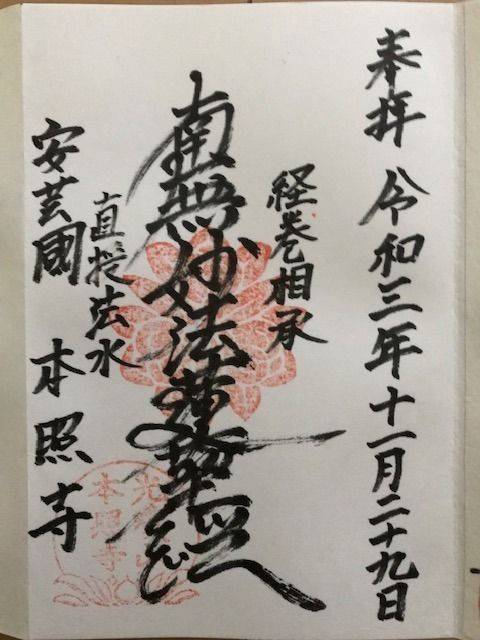 奉拝 令和三年十一月二十九日
経巻相承
南無妙法蓮華経
直授法水
安芸國 本照寺
本照寺